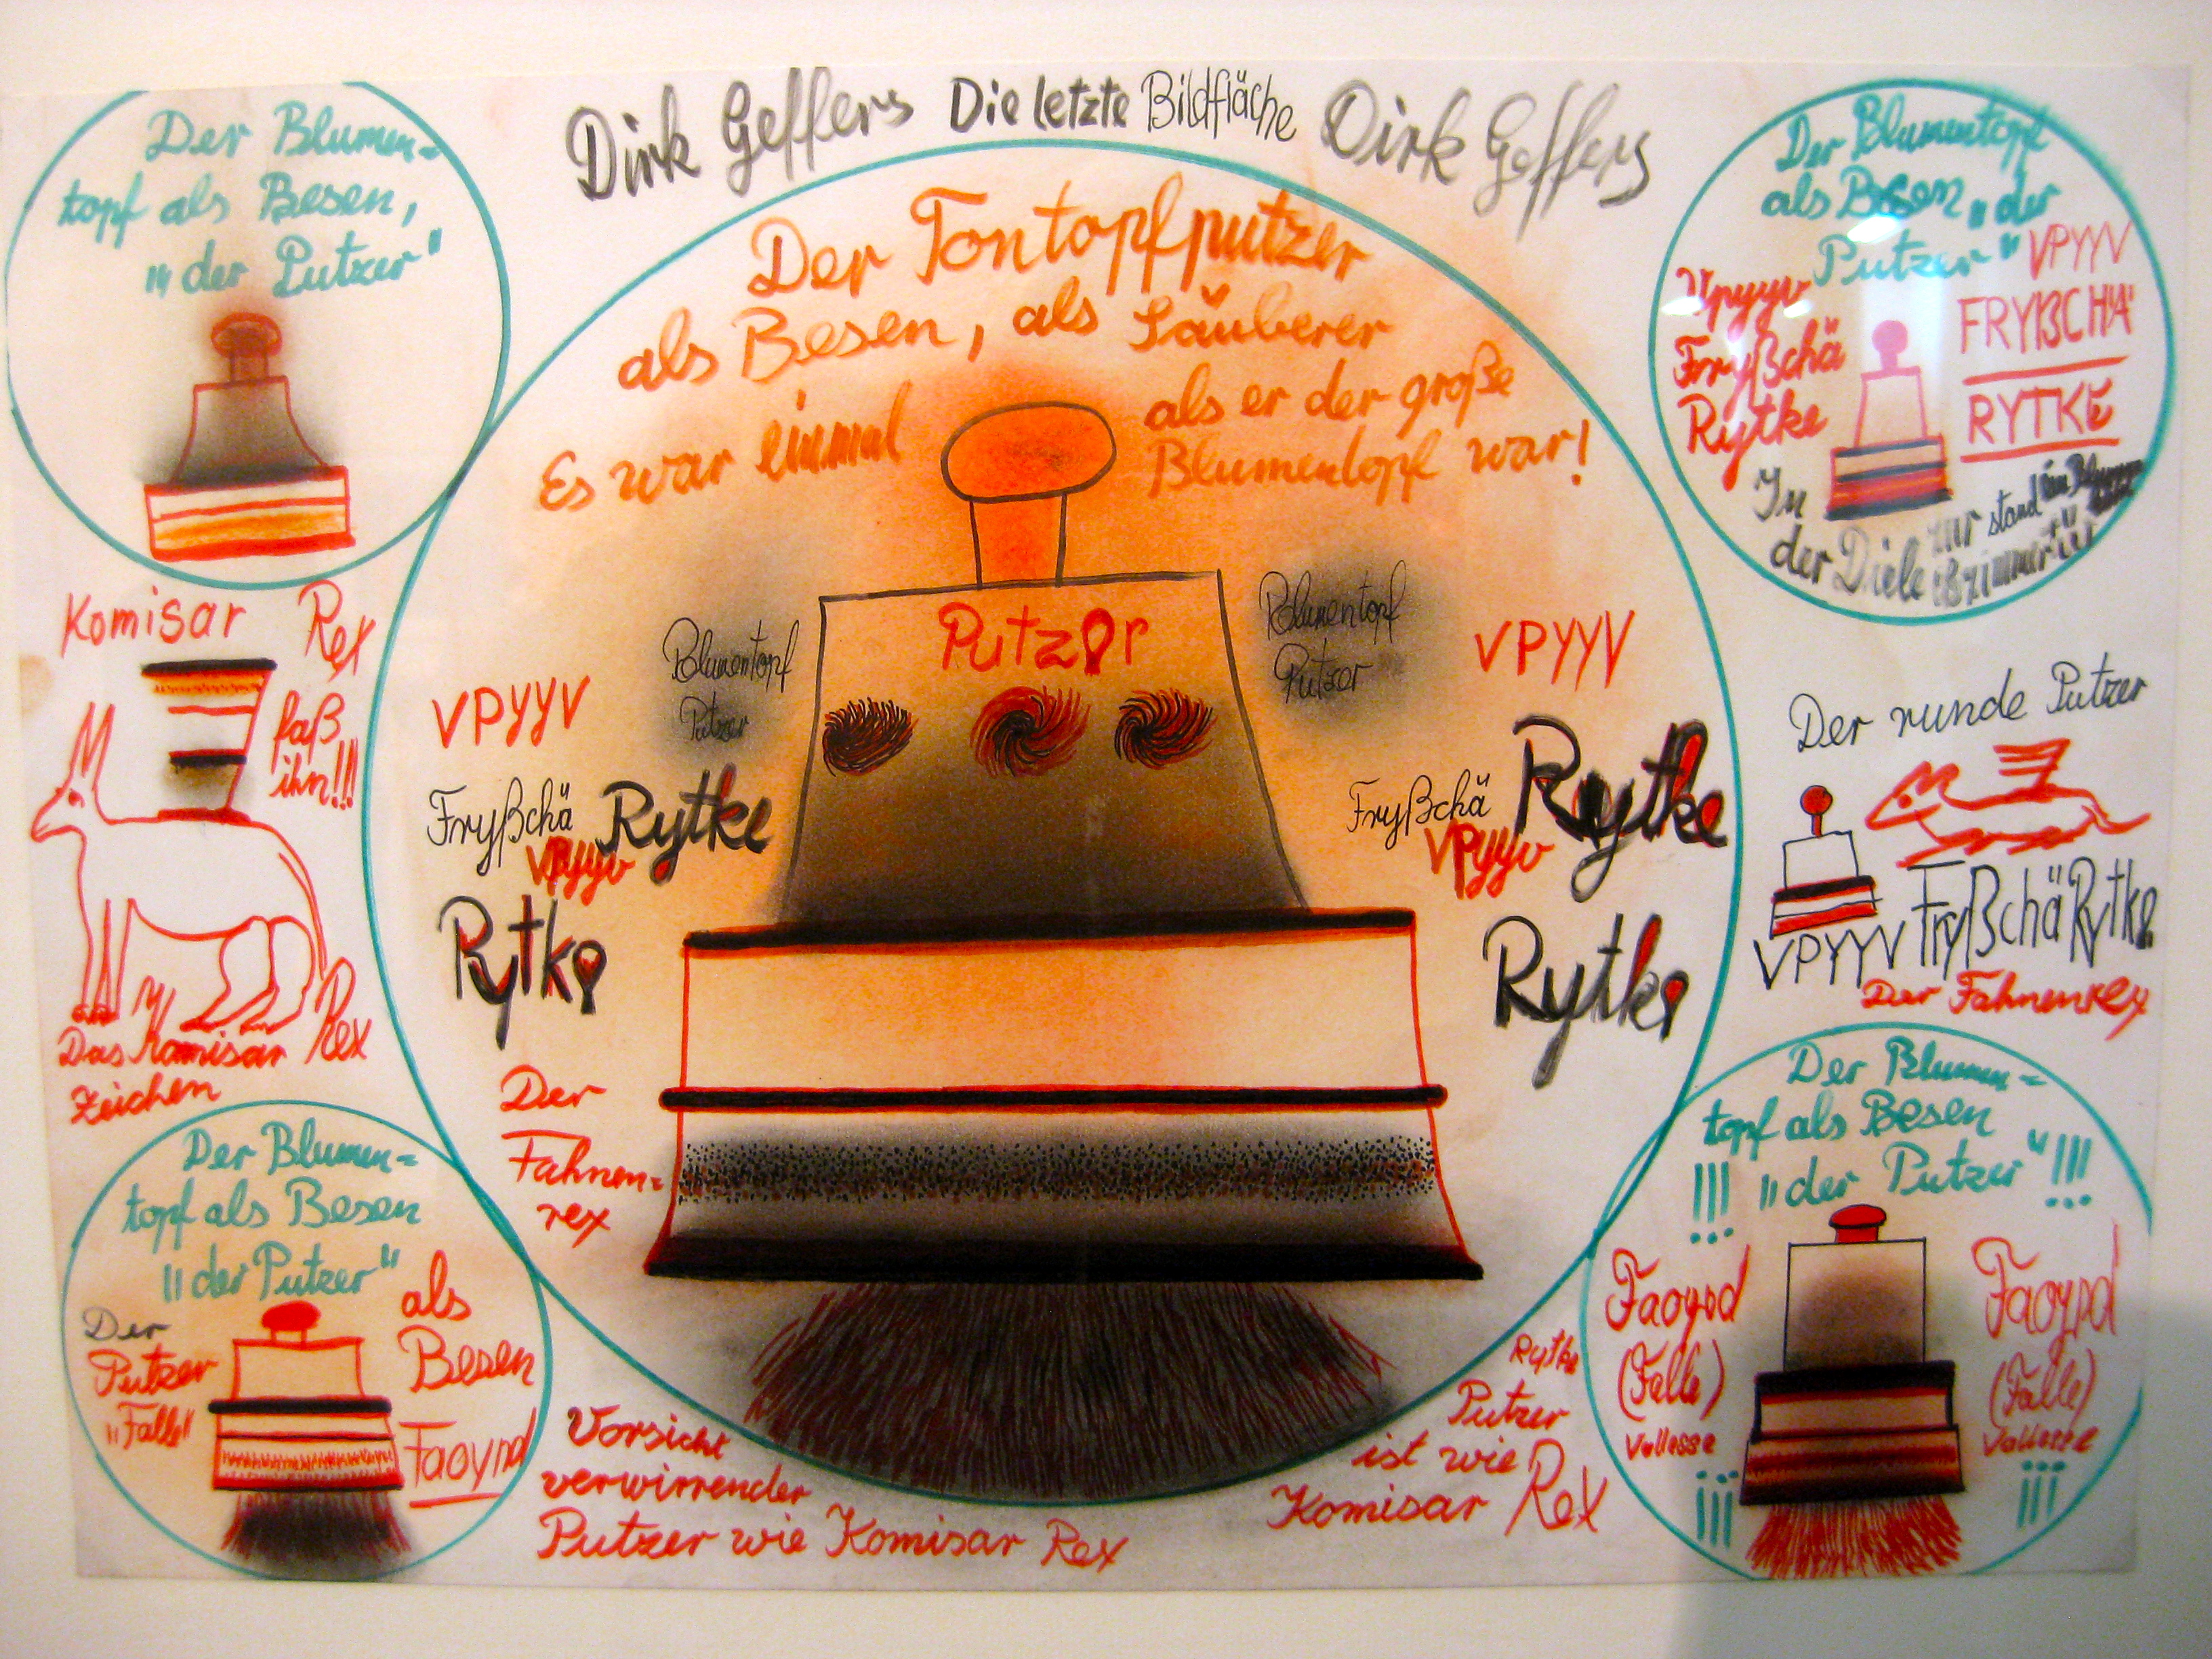 Dirk Geffers Die letzte Bildfläche Dirk Geffers
Der Blumen=
topf als Besen,
"der Putzer"
Der Tontopfputzer
als Besen, als Säuberer
Es war einmal
als er der große
Blumentopf war!
Putzer
Blumentopf
Putzer
Blumentopf
Putzer
VPYYV
Fryßchä Rytke
VPyyv
Rytke
VPYYV
Fryßchä Rytke
VPyyv
Rytke
Der
Fahnen=
rex
Der Blumentopf
als Besen "der
Putzer"
Vpyyv
Fryßchä
Rytke
VPYYV
FRYßCHÄ
RYTKE
In
der Diele
stand
Komisar Rex
faß
ihn!!!
Das Komisar Rex
zeichen
Der runde Putzer
VPYYV Fryßchä Rytke
Der Fahnenrex
Der Blumen=
topf als Besen
"der Putzer"
Der
Putzer
"Falle"
als
Besen
Faoyrd
Vorsicht
verwirrender
Putzer wie Komisar Rex
Rytke
Putzer
ist wie
Komisar Rex
Der Blumen=
topf als Besen
!!! "der Putzer" !!!
Faoyrd
(Falle)
Vallesse
!!!
Faoyrd
(Falle)
Vallesse
!!!